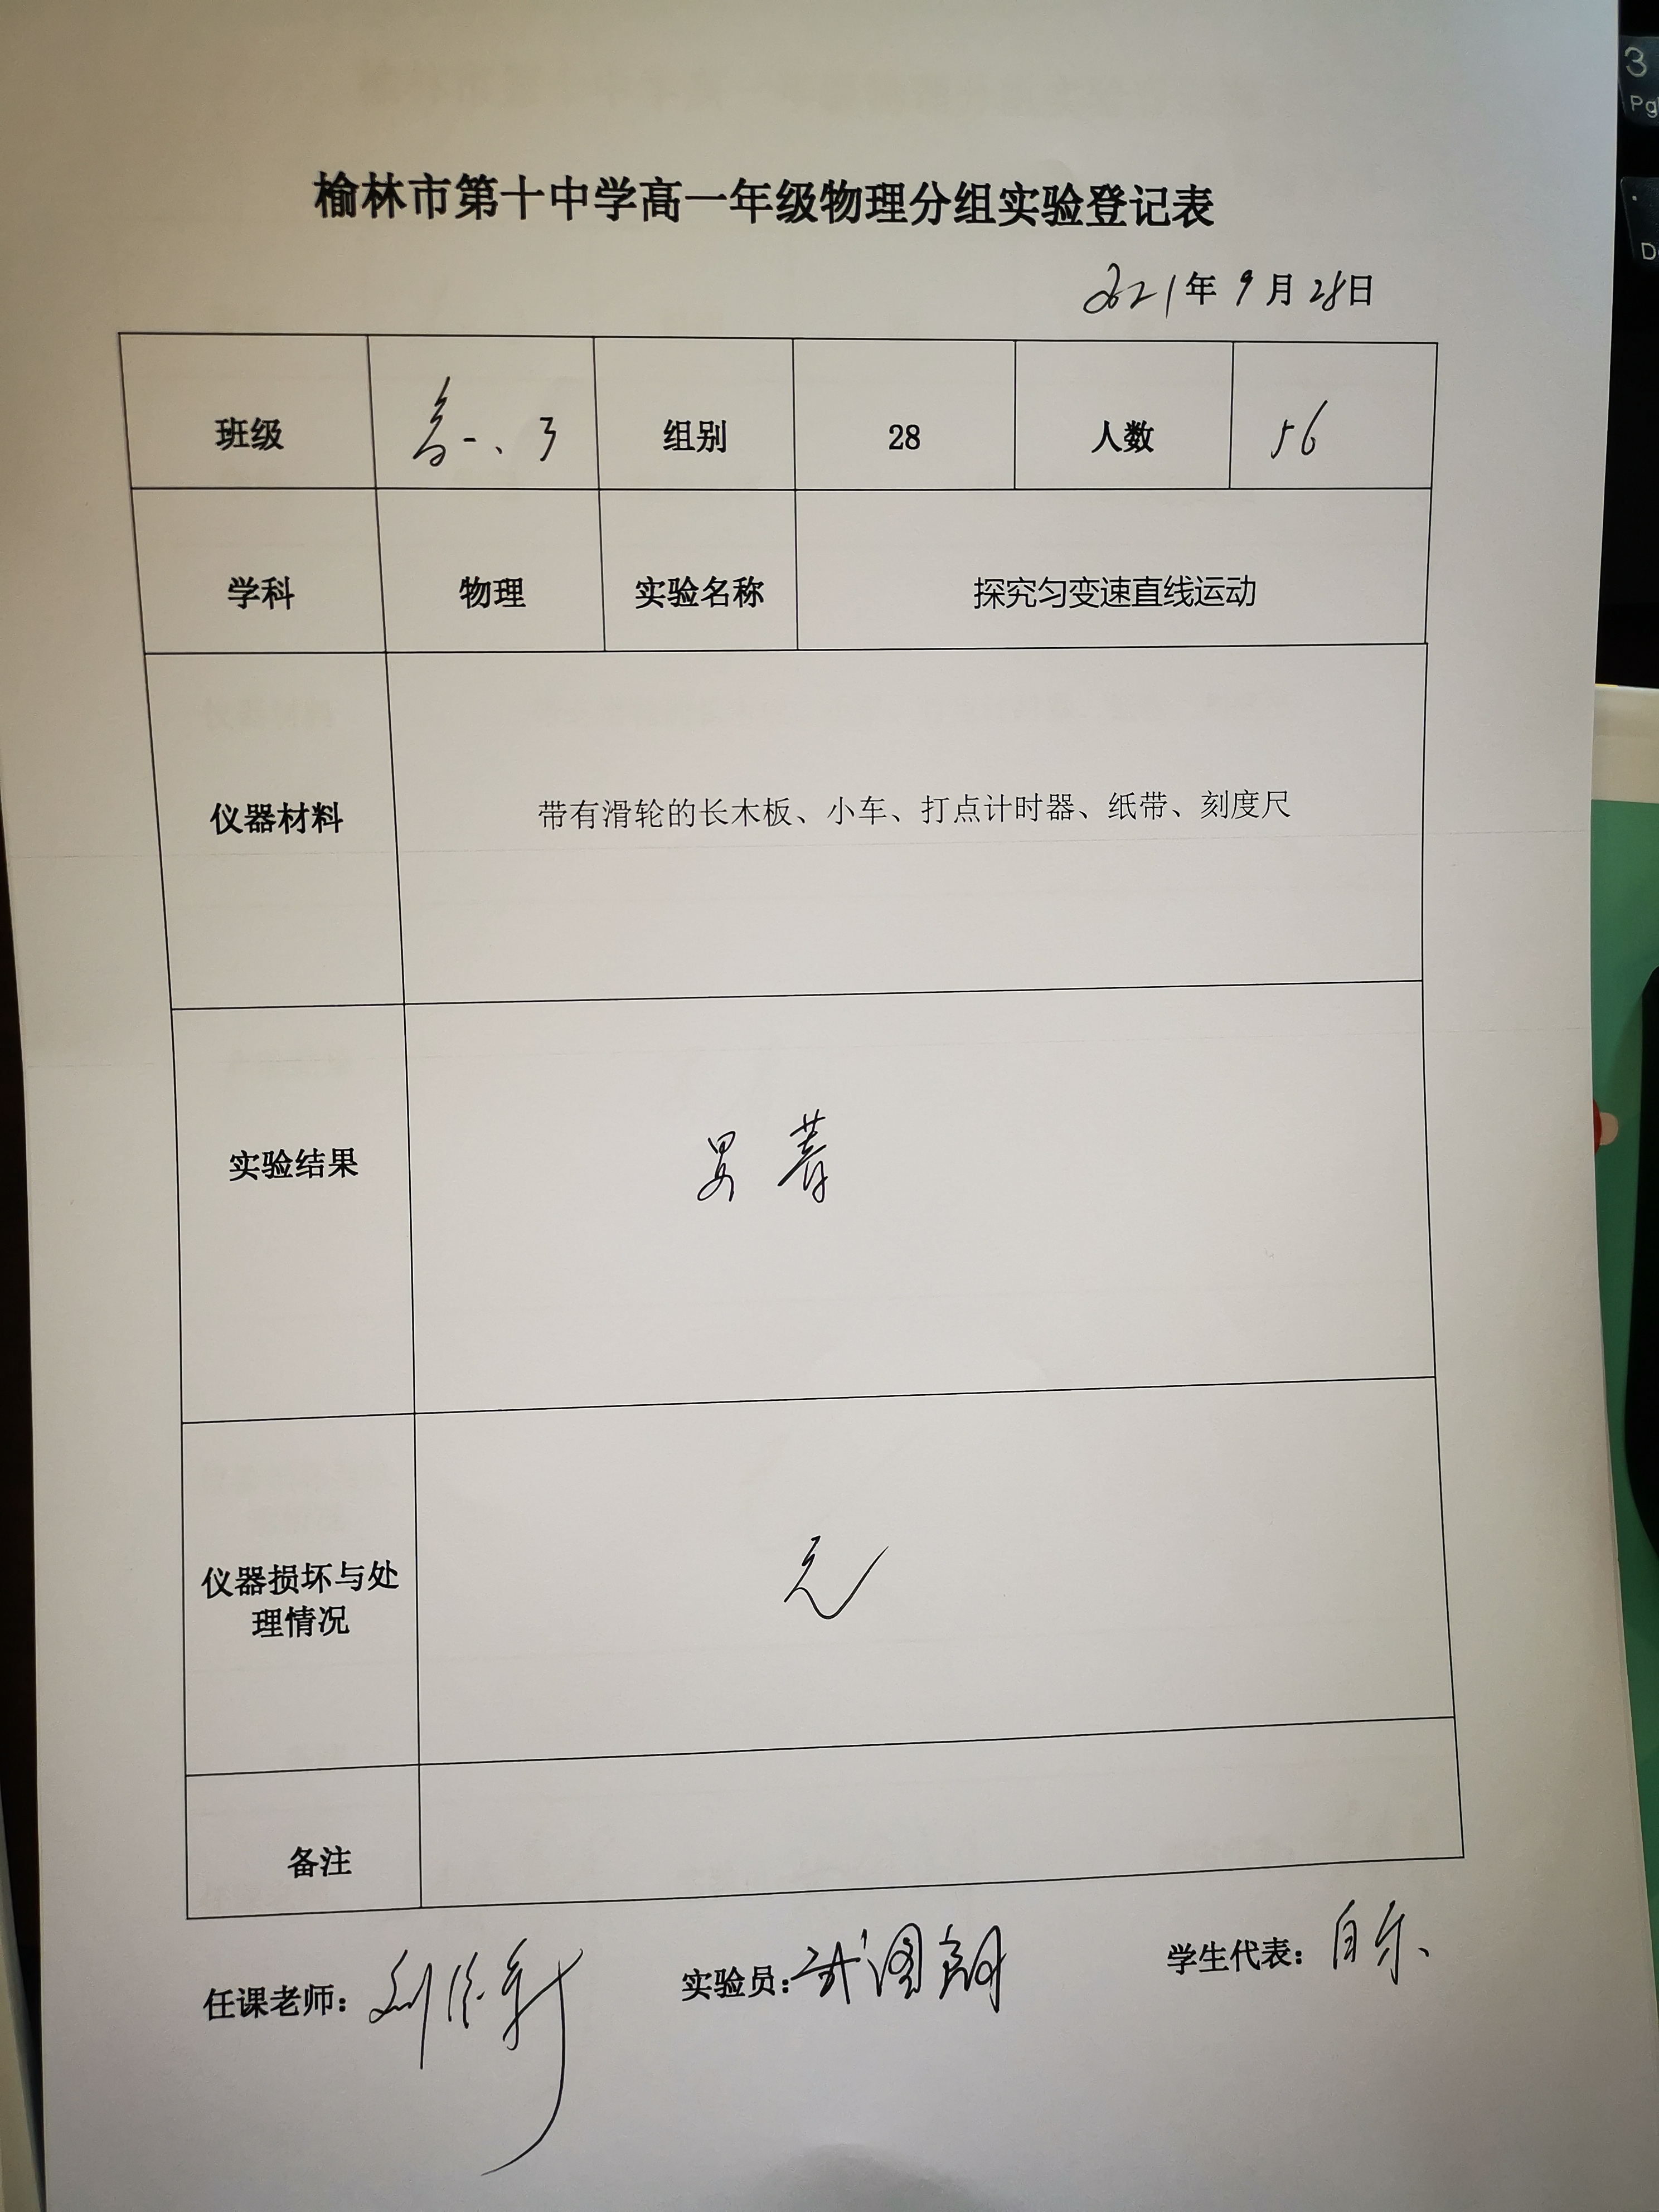 榆林市第十中学高一年级物理分组实验登记表
2021年9月28日
班级 高一、3 组别 28 人数 56
学科 物理 实验名称 探究匀变速直线运动
仪器材料 带有滑轮的长木板、小车、打点计时器、纸带、刻度尺
实验结果
仪器损坏与处
理情况 无
备注
任课老师: 刘 实验员: 学生代表:
3